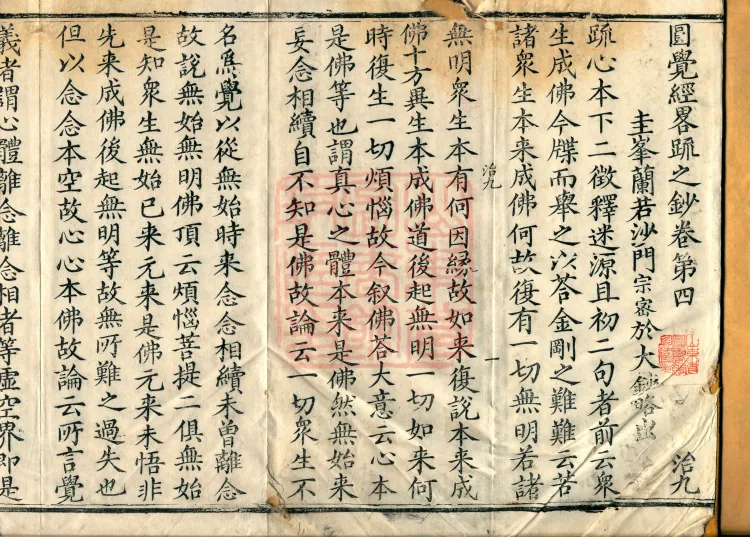 圓覺經畧䟽之鈔卷第四 治九
圭峯蘭若沙門宗宻於大鈔略出
䟽心本下二徵釋迷源且初二句者前云衆
生成佛今牒而舉之以荅金剛之難難云若
諸衆生本来成佛何故復有一切無明若諸
治九
一
無明衆生本有何因緣故如来復說本来成
佛十方異生本成佛道後起無明一切如来何
時復生一切煩惱故今叙佛荅大意云心本
是佛等也謂真心之體本来是佛然無始来
妄念相續自不知是佛故論云一切衆生不
名為覺以從無始時来念念相續未曾離念
故說無始無明佛頂云煩惱菩提二俱無始
是知衆生無始已来元来是佛元来未悟非
先来成佛後起無明等故無所難之過失也
但以念念本空故心心本佛故論云所言覺
義者謂心體離念離念相者等虛空界即是